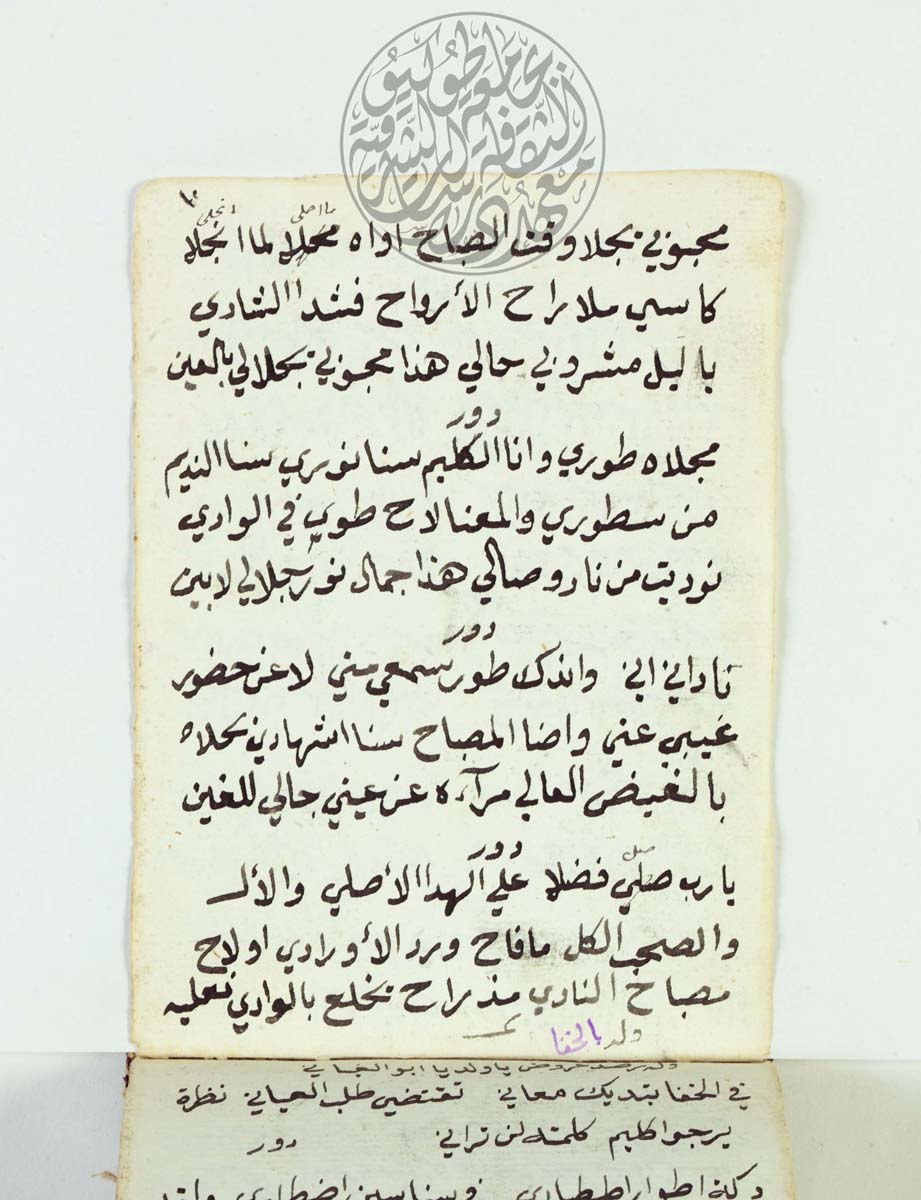 جامعة طوكيو
معهد دراسات الثقافة الشرقية
١٠
ما احلى انجلى
محبوبي تجلا وقت الصباح اواه محلا لما انجلا
كاسي ملا راح الأرواح فشدا الشادي
يا ليل مشروبي حالي هذا محبوبي تجلالي بالعين
دور
مجلاه طوري وانا الكليم سنا نوري سنا النديم
من سطوري والمعنا لاح طوي في الوادي
نوديت من نار وصالي هذا جمال نور تجلالي لابين
دور
ناداني اني واندك طور سمعي مني لا عن حضور
غيبي عني واضا المصباح سنا اشهادي تحلاه
بالغيض العالي مرآءه عن عيني جالي للغين
دور
صل
يا رب صلي فضلا علي الهدا الأصلي والأل
والصحب الكل ما فاح ورد الأورادي او لاح
مصباح النادي مذ راح يخلع بالوادي نعليه
ولد بالخفا
في الخفا بتديك معاني تقتضي طلب العياني نظرة
يرجو الكليم كلمته لن تراني دور